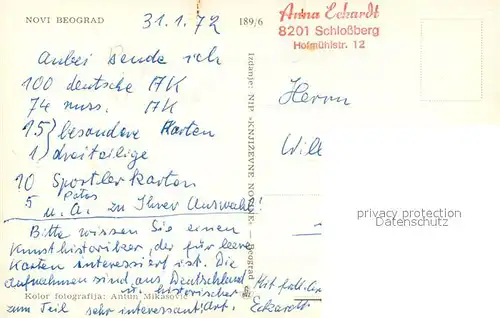 NOVI BEOGRAD
31.1.72
189/6
Anna Eckardt
8201 Schloßberg
Hofmühlstr. 12
Anbei sende ich
100 deutsche AK
74 russ. AK
15 } besondere Karten
1 } dreiteilige
10 Sportlerkarten
5 Fotos
u. A. zu Ihrer Auswahl!
Bitte wissen Sie einen
Kunsthistoriker, der für leere
Karten interessiert ist. Die
Aufnahmen sind aus Deutschland
u. historischer
zum Teil sehr interessant! Art.
Kolor fotografija: Antun Mikasović
Izdanje: NIP »KNJIŽEVNE NOVINE« — Beograd
Herrn
Will
privacy protection
Datenschutz
Mit frdl.
Eckardt